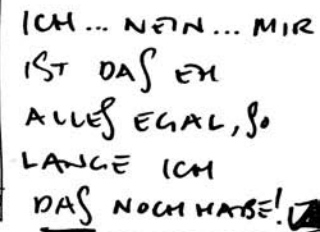 ICH... NEIN... MIR
IST DAS EH
ALLES EGAL, SO
LANGE ICH
DAS NOCH HABE!